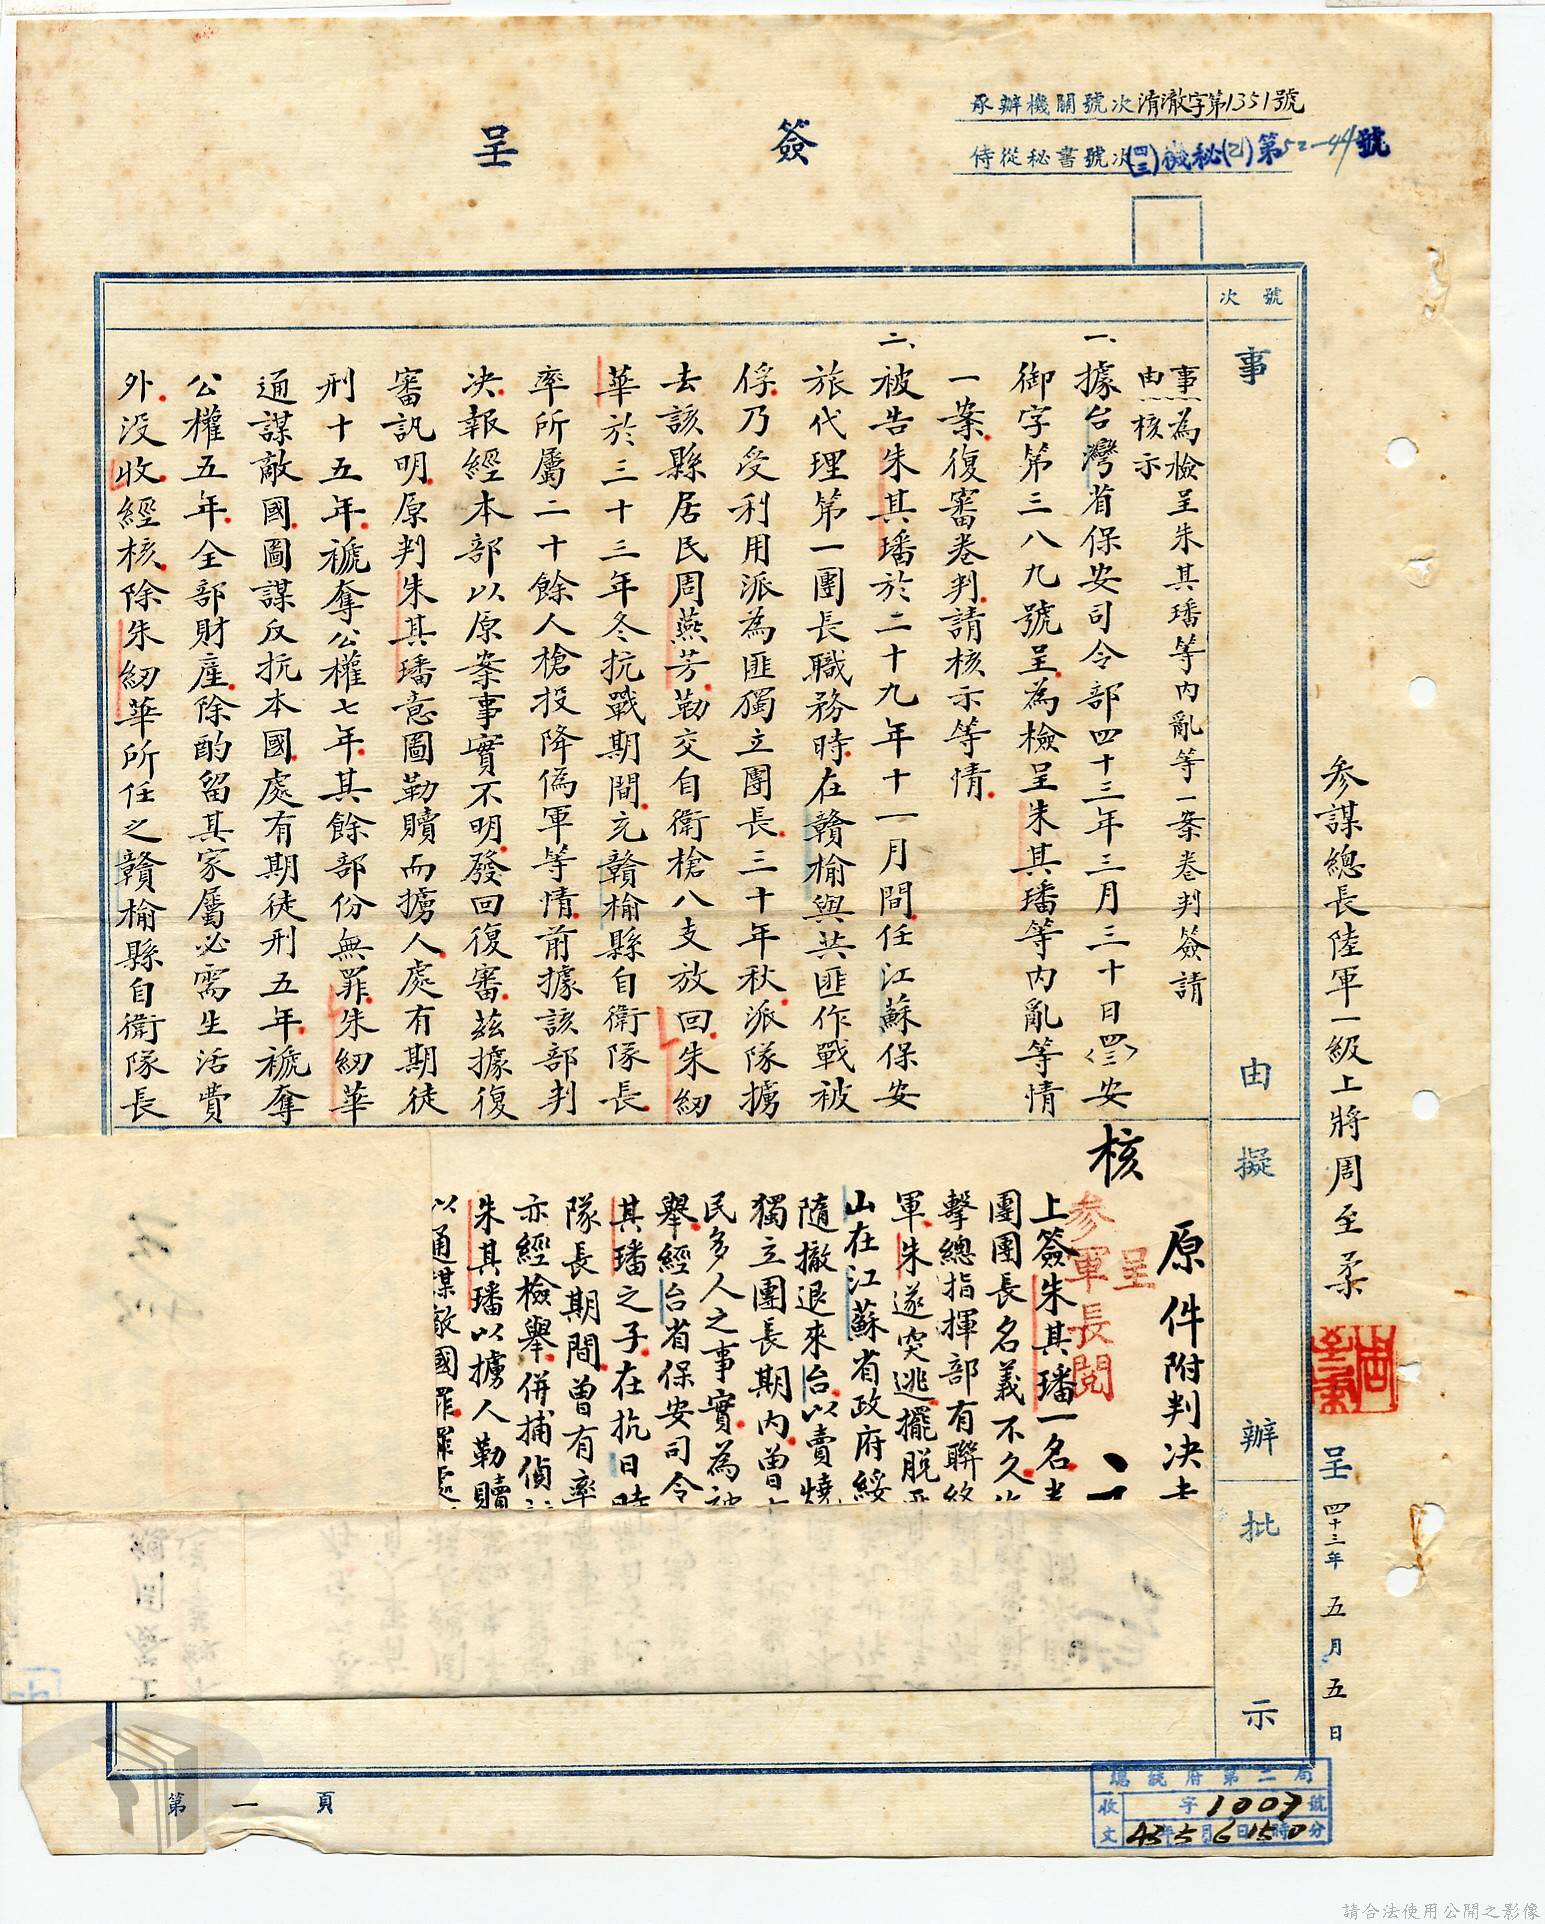 承辦機關號次清澈字第1351號
侍從秘書號次(四三)機秘(乙)第52-44號
簽呈
參謀總長陸軍一級上將周至柔
呈 四十三年五月五日
號次
事由
擬辦
批示
事由 為檢呈朱其璠等內亂等一案卷判簽請
核示
一、據台灣省保安司令部四十三年三月三十日(四三)安
御字第三八九號呈為檢呈朱其璠等內亂等情
一案復審卷判請核示等情
二、被告朱其璠於二十九年十一月間任江蘇保安
旅代理第一團長職務時在贛榆與共匪作戰被
俘乃受利用派為匪獨立團長三十年秋派隊擄
去該縣居民周燕芳勒交自衛槍八支放回朱紉
華於三十三年冬抗戰期間充贛榆縣自衛隊長
率所屬二十餘人槍投降偽軍等情前據該部判
決報經本部以原案事實不明發回復審茲據復
審訊明原判朱其璠意圖勒贖而擄人處有期徒
刑十五年褫奪公權七年其餘部份無罪朱紉華
通謀敵國圖謀反抗本國處有期徒刑五年褫奪
公權五年全部財產除酌留其家屬必需生活費
外沒收經核除朱紉華所任之贛榆縣自衛隊長
原件附判決
核
呈
參軍長閱
上簽朱其璠一名
團團長名義不久
擊總指揮部有聯絡
軍朱遂突逃擺脫
山在江蘇省政府綏
隨撤退來台以賣燒
獨立團長期內曾
民多人之事實為被
舉經台省保安司令
其璠之子在抗日時
隊長期間曾有率
亦經檢舉併捕偵
朱其璠以擄人勒贖
以通謀敵國罪
第一頁
總統府第二局
收文 字1007號
43年5月6日15時0分
請合法使用公開之影像